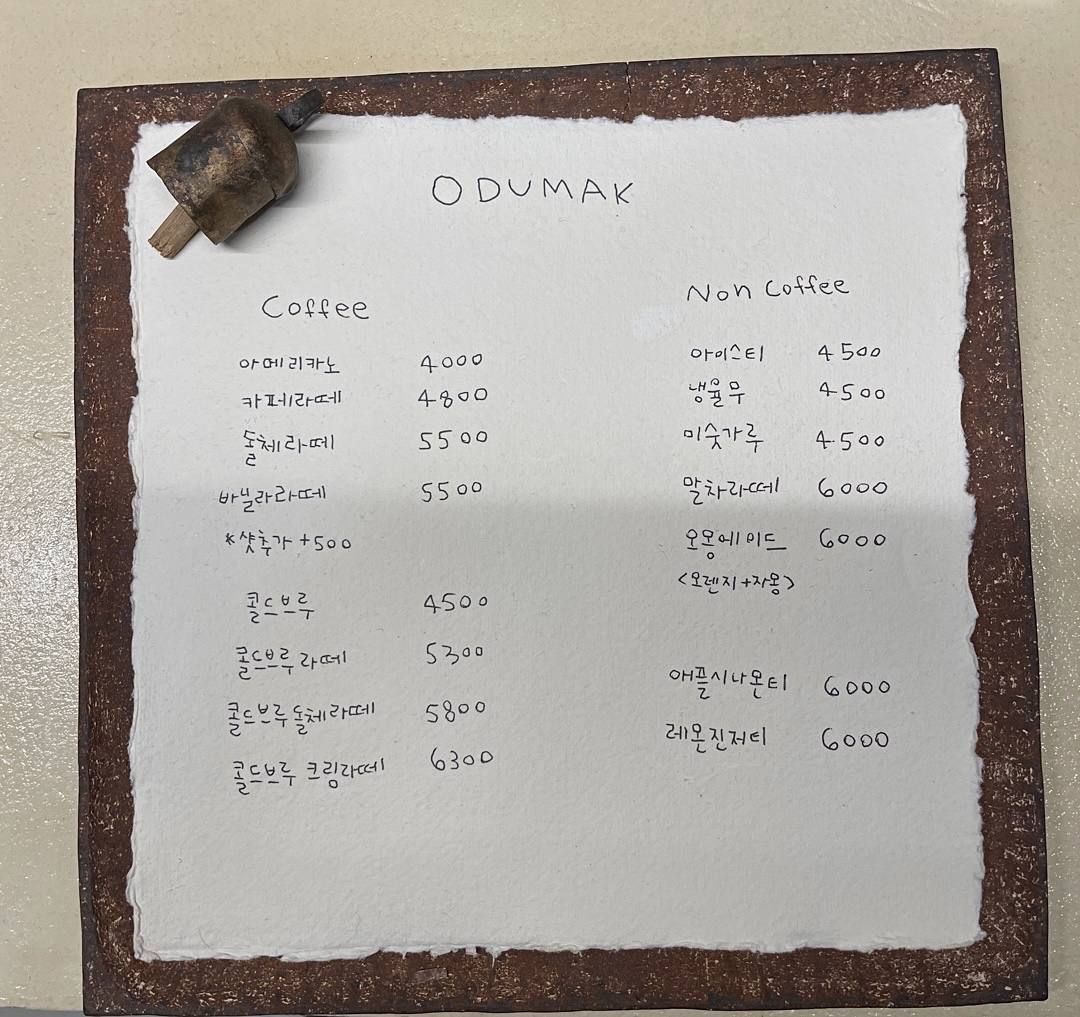 ODUMAK
Coffee
아메리카노 4000
카페라떼 4800
돌체라떼 5500
바닐라라떼 5500
*샷추가 +500
콜드브루 4500
콜드브루라떼 5300
콜드브루돌체라떼 5800
콜드브루 크림라떼 6300
Non Coffee
아이스티 4500
냉율무 4500
미숫가루 4500
말차라떼 6000
오몽에이드 6000
<오렌지+자몽>
애플시나몬티 6000
레몬진저티 6000